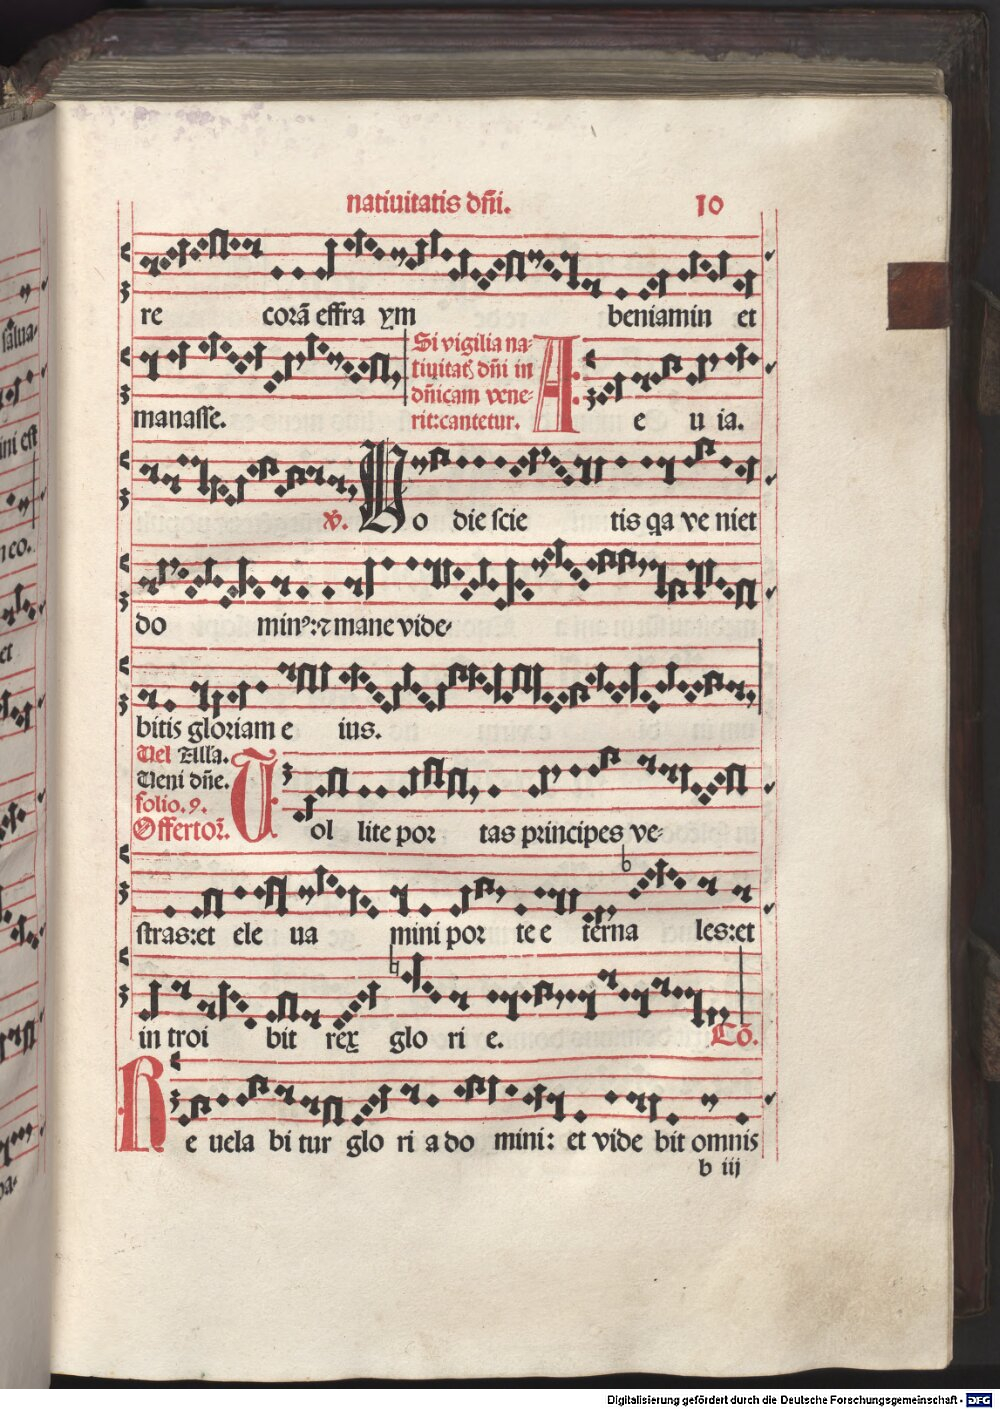 natiuitatis dñi. 10
re corã effra ym beniamin et
manasse.
Si vigilia na-
tiuitat dñi in
dñicam vene-
rit: cantetur.
A e u ia.
v. Ho die scie tis qa ve niet
do minꝰ: ⁊ mane vide-
bitis gloriam e ius.
Uel Alla.
Ueni dñe.
folio. 9.
Offertor.
Tol lite por tas principes ve-
stras: et ele ua mini por te e terna les: et
in troi bit rex glo ri e. Cõ.
Re uela bi tur glo ri a do mini: et vide bit omnis
b iij
Digitalisierung gefördert durch die Deutsche Forschungsgemeinschaft - DFG